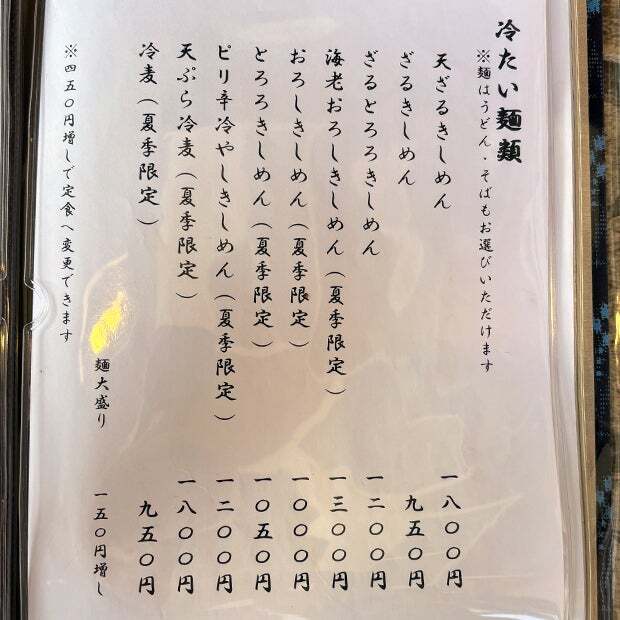 冷たい麺類
※麺はうどん・そばもお選びいただけます
天ざるきしめん 一八〇〇円
ざるきしめん 九五〇円
ざるとろろきしめん 一二〇〇円
海老おろしきしめん(夏季限定) 一三〇〇円
おろしきしめん(夏季限定) 一〇〇〇円
とろろきしめん(夏季限定) 一〇五〇円
ピリ辛冷やしきしめん(夏季限定) 一二〇〇円
天ぷら冷麦(夏季限定) 一八〇〇円
冷麦(夏季限定) 九五〇円
麺大盛り 一五〇円増し
※四五〇円増しで定食へ変更できます